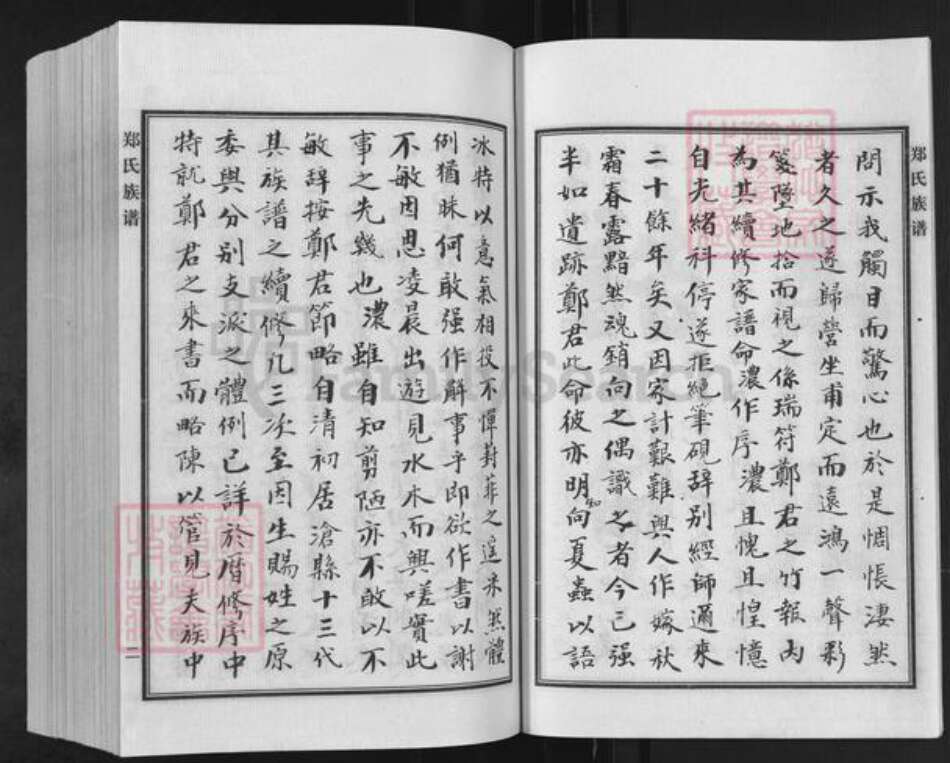 郑氏族谱
問示我觸目而驚心也於是惆悵淒然
者久之遂歸營坐甫定而遠鴻一聲彩
箋墜地拾而視之係瑞符鄭君之竹報內
為其續修家譜命濃作序濃且愧且惶憶
自光緒科停遂拒絕筆硯辞别經師邇來
二十餘年矣又因家計艱難與人作嫁秋
霜春露黯然魂銷向之偶識之者今已强
半如遺跡鄭君此命彼亦明知向夏蟲以語
冰特以意氣相投不憚葑菲之采然體
例猶昧何敢强作解事乎即欲作書以謝
不敏因思凌晨出遊見水木而興嗟實此
事之先幾也濃雖自知剪陋亦不敢以不
敏辞按鄭君節略自清初居滄縣十三代
其族譜之續修凡三次至因生賜姓之原
委與分别支派之體例已詳於曆修序中
特就鄭君之來書而略陳以管見夫族中
郑氏族谱
二
FamilySearch